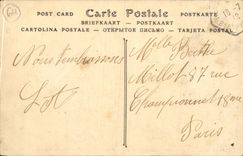 POST CARD Carte Postale POSTKARTE
BRIEFKAART — POSTKAART
CARTOLINA POSTALE — ОТКРЫТОЕ ПИСЬМО — TARJETA POSTAL
Nous t'embrassons
Melle Berthe
Millot 87 rue
Championnet 18me
Paris